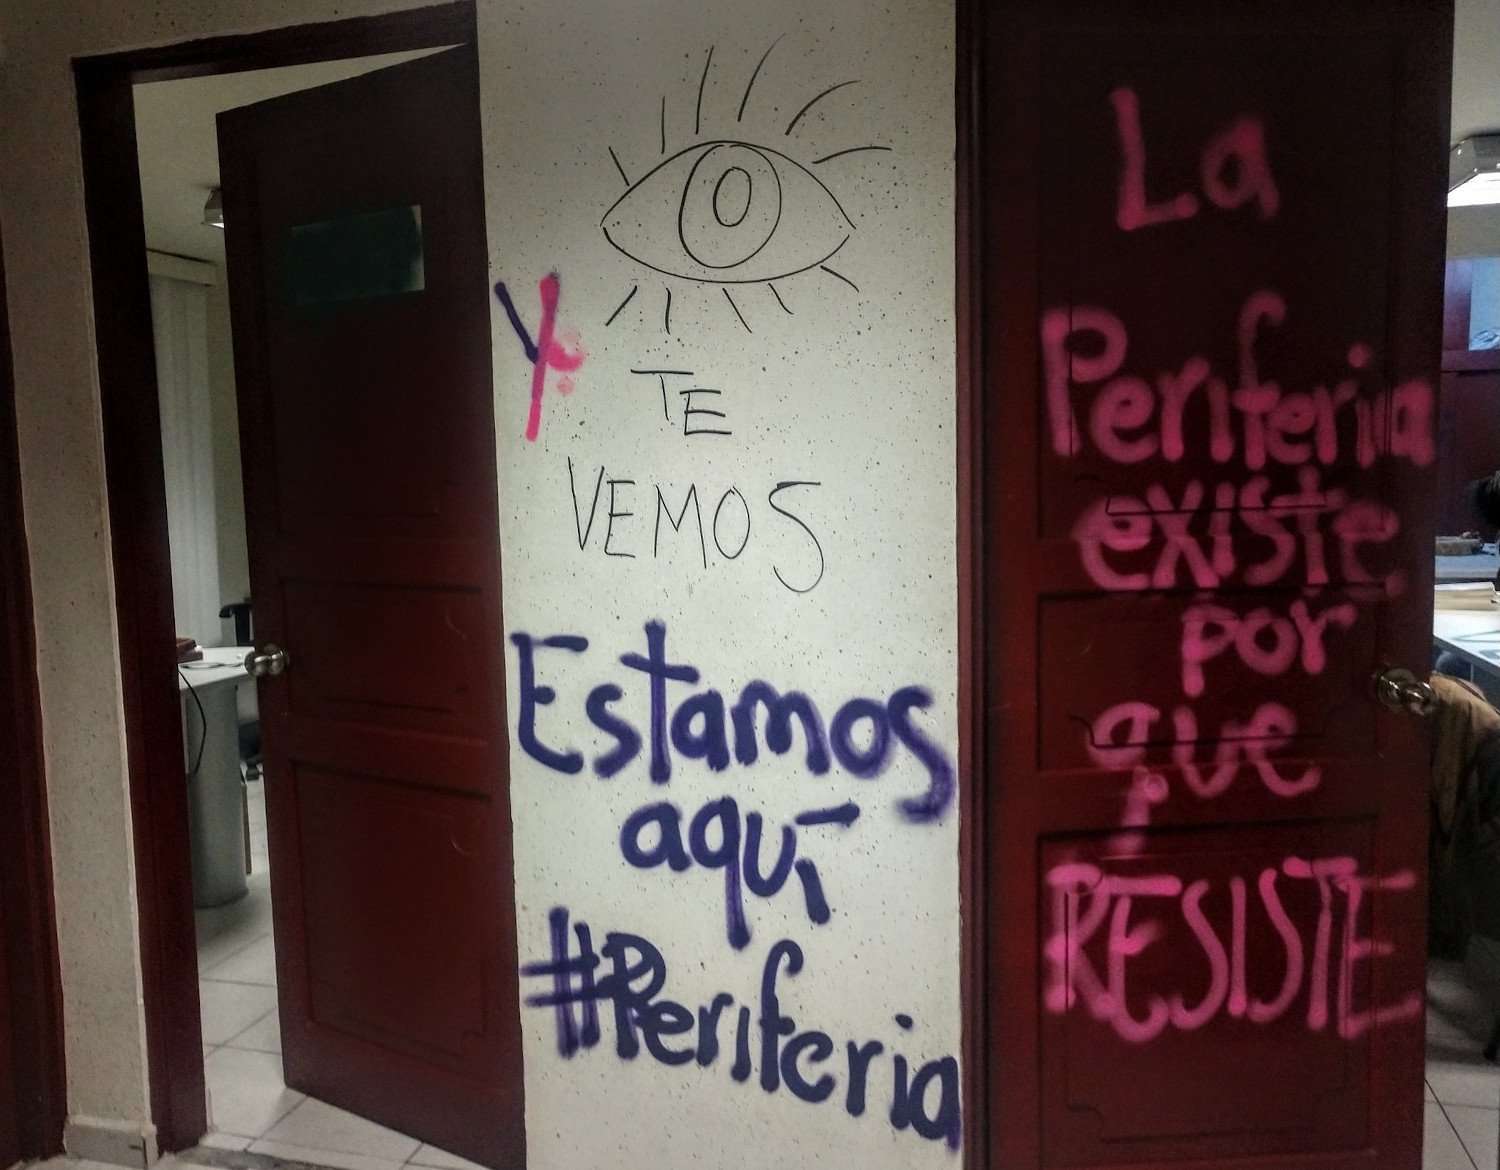 Y
TE
VEMOS
Estamos
aquí
#Periferia
La
Periferia
existe
por
que
RESISTE